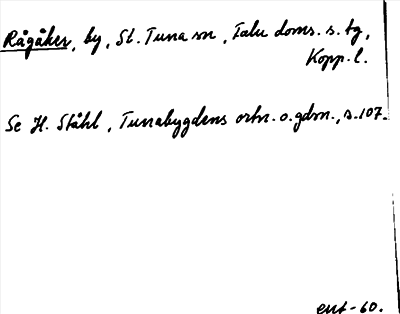 Rågåker, by, St. Tuna sn, Falu doms. s. tg,
Kopp. l.
Se H. Ståhl, Tunabygdens ortn. o. gdsn., s. 107.
ent - 60.